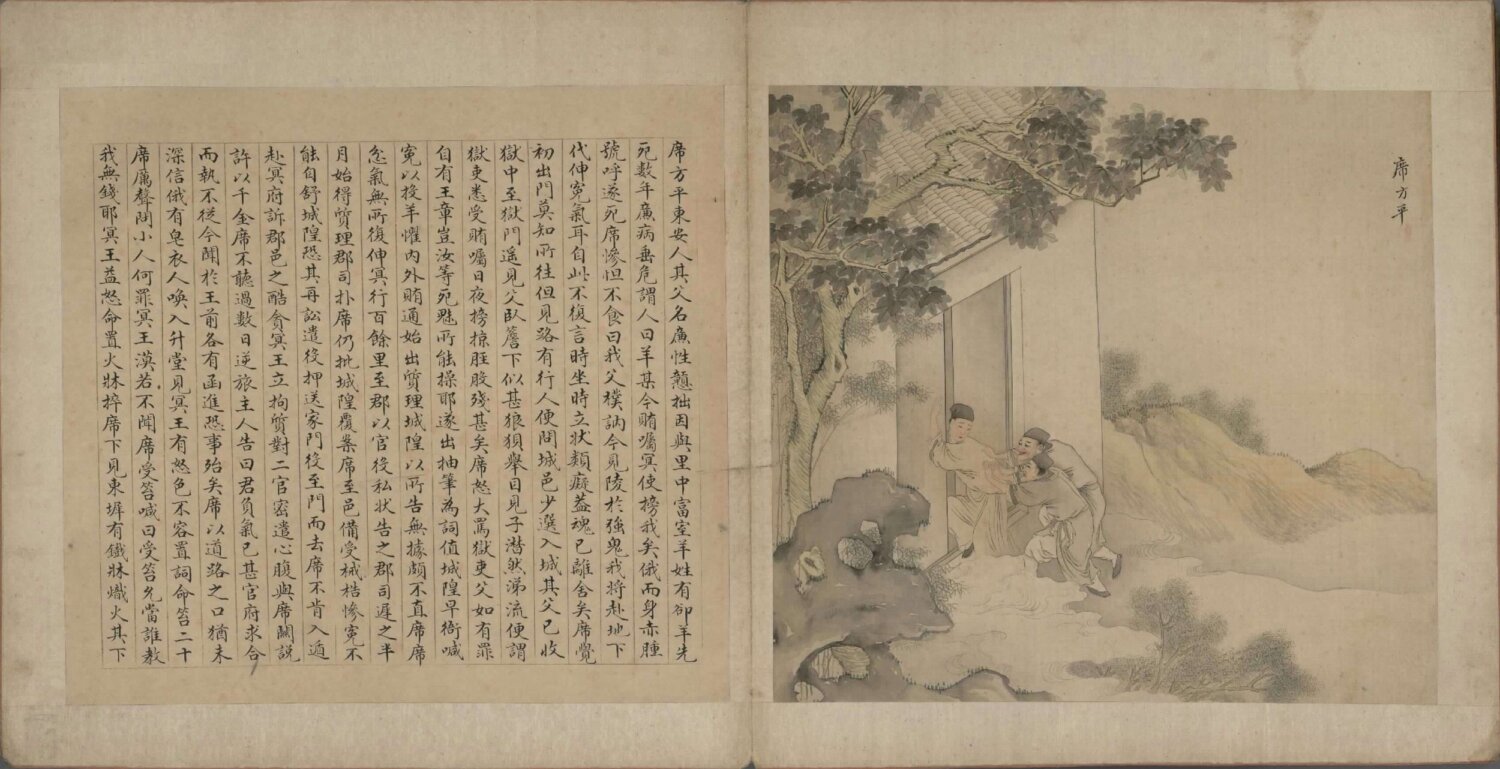 席方平
席方平東安人其父名廉性戇拙因與里中富室羊姓有卻羊先
死數年廉病垂危謂人曰羊某今賄囑冥使搒我矣俄而身赤腫
號呼遂死席慘怛不食曰我父樸訥今見陵於強鬼我將赴地下
代伸冤氣耳自此不復言時坐時立狀類癡蓋魂已離舍矣席覺
初出門莫知所往但見路有行人便問城邑少選入城其父已收
獄中至獄門遙見父臥簷下似甚狼狽舉目見子潸然涕流便謂
獄吏悉受賄囑日夜搒掠脛股殘甚矣席怒大罵獄吏父如有罪
自有王章豈汝等死魅所能操耶遂出抽筆為詞值城隍早衙喊
冤以投羊懼內外賄通始出質理城隍以所告無據頗不直席席
忿氣無所復伸冥行百餘里至郡以官役私狀告之郡司遲之半
月始得質理郡司扑席仍批城隍覆案席至邑備受械梏慘冤不
能自舒城隍恐其再訟遣役押送家門役至門而去席不肯入遁
赴冥府訴郡邑之酷貪冥王立拘質對二官密遣心腹與席關說
許以千金席不聽過數日逆旅主人告曰君負氣已甚官府求合
而執不從今聞於王前各有函進恐事殆矣席以道路之口猶未
深信俄有皂衣人喚入升堂見冥王有怒色不容置詞命笞二十
席厲聲問小人何罪冥王漠若不聞席受笞喊曰受笞允當誰教
我無錢耶冥王益怒命置火牀捽席下見東墀有鐵牀熾火其下